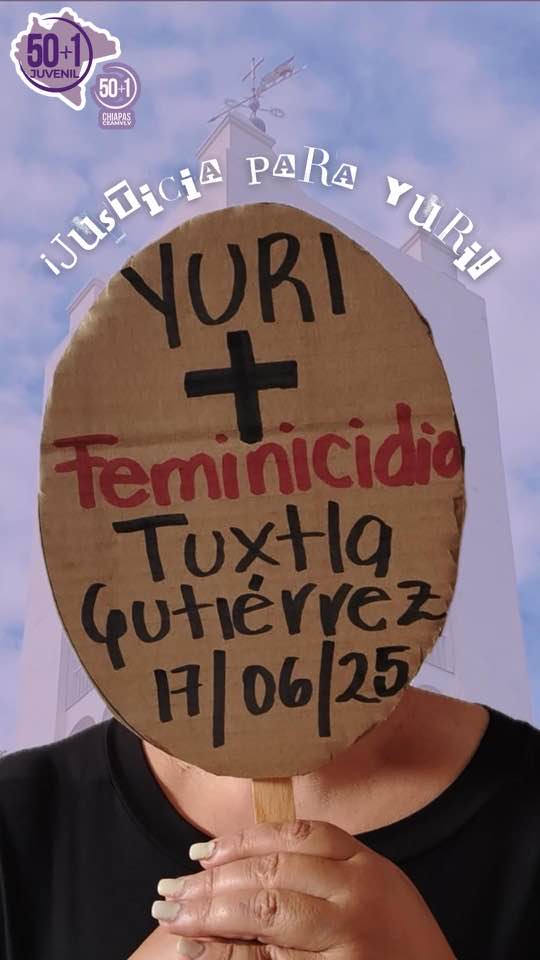 50+1
JUVENIL
50+1
CHIAPAS
CEAMVLV
¡JUSTICIA PARA YURI!
YURI
+
Feminicidio
Tuxtla
Gutiérrez
17/06/25